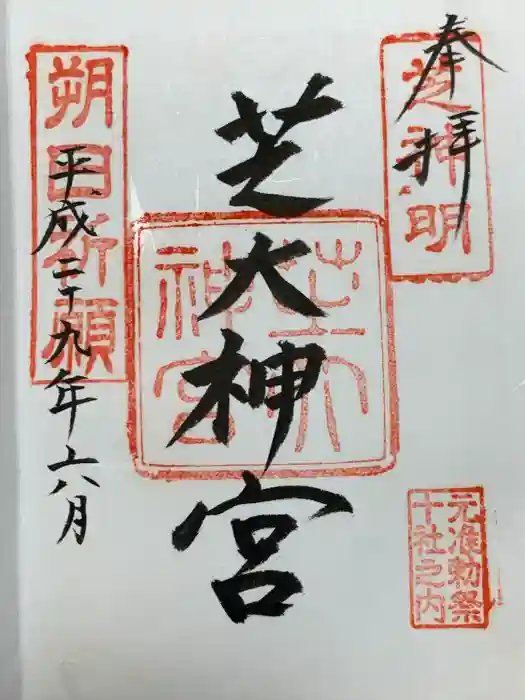 奉拝
芝神明
元准勅祭
十社之内
芝大神宮
芝大
神宮
朔日祈願
平成二十九年六月